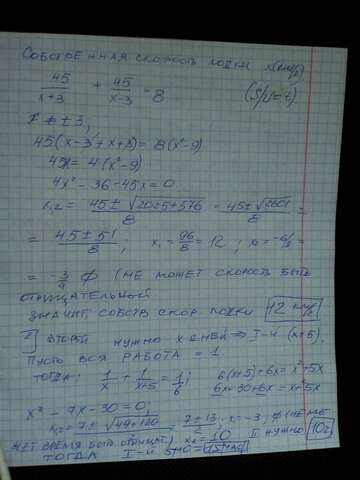 Собственная скорость лодки x(км/ч)
45/(x+3) + 45/(x-3) = 8 (S/υ=t)
x ≠ ±3;
45(x-3+x+3) = 8(x²-9)
45x = 4(x²-9)
4x² - 36 - 45x = 0
x₁,₂ = (45 ± √(2025+576))/8 = (45 ± √2601)/8 =
= (45 ± 51)/8; x₁ = 96/8 = 12; x₂ = -6/8 =
= -3/4 ∅ (не может скорость быть
отрицательной.
Значит, собств скор. лодки 12 км/ч
II) второй нужно x дней ⇒ I-й (x+5),
Пусть вся работа = 1
тогда: 1/x + 1/(x+5) = 1/6; 6(x+5)+6x = x²+5x
6x+30+6x = x²+5x
x² - 7x - 30 = 0;
x₁,₂ = (7 ± √(49+120))/2 = (7 ± 13)/2; x₁ = -3, ∅ (не мо-
жет время быть отрицат) x₂ = 10 II нужно 10
тогда I-й 5+10 =